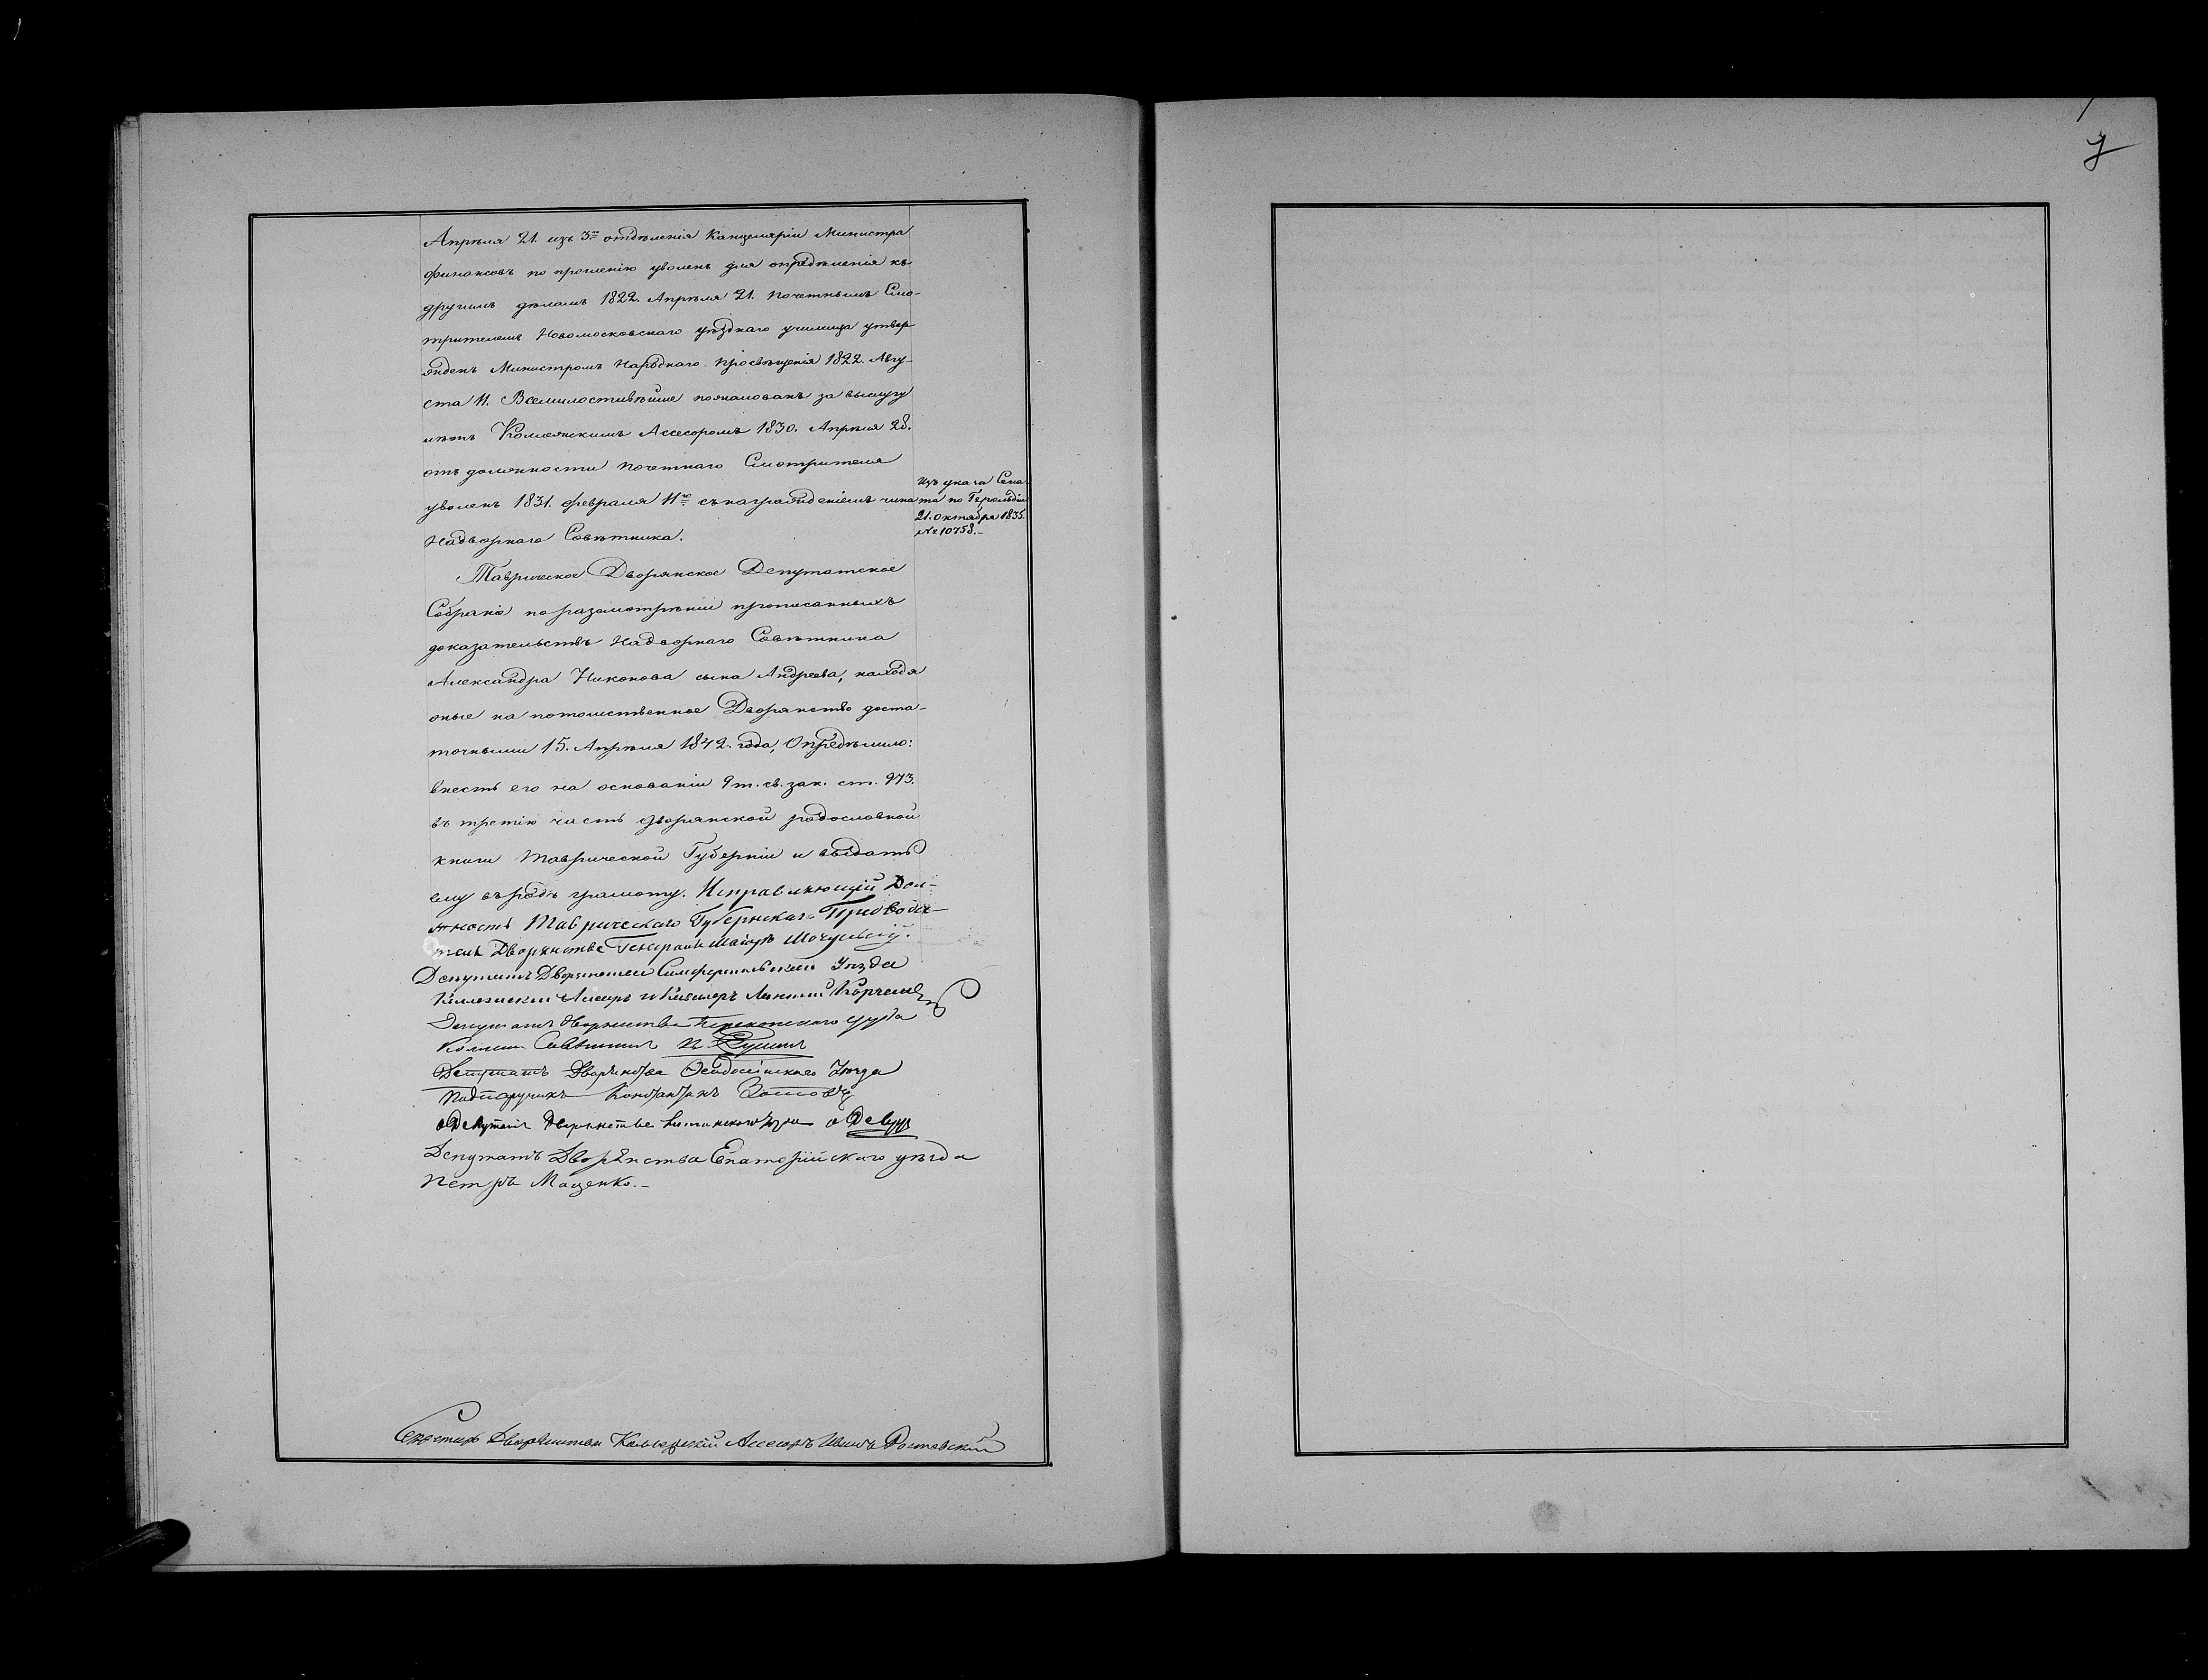 Апрѣля 21. изъ 3го отдѣленія Канцеляріи Министра
финансовъ по прошенію уволенъ для опредѣленія къ
другимъ дѣламъ 1822. Апрѣля 21. Почетнымъ Смо-
трителемъ Новомосковскаго уѣзднаго училища утвер
жденъ Министромъ Народнаго Просвѣщенія 1822. Авгу-
ста 11. Всемилостивѣйше пожалованъ за выслугу
лѣтъ Коллежскимъ Ассесоромъ 1830. Апрѣля 28.
отъ должности Почетнаго Смотрителя
уволенъ 1831. Февраля 11го съ награжденіемъ чина
Надворнаго Совѣтника.
Изъ указа Сена-
та по Герольдіи
21. Октября 1835.
№ 10758.-
Таврическое Дворянское Депутатское
Собраніе по разсмотрѣніи прописанныхъ
доказательствъ Надворнаго Совѣтника
Александра Никонова сына Андреева, находя
оныя на потомственное Дворянство доста-
точными 15. Апрѣля 1842. года, Опредѣлило:
внесть его на основаніи 9 т. св. зак. ст. 973.
въ третію часть дворянской родословной
книги Таврической Губерніи и выдать
ему въ родъ грамоту. Исправляющій Дол-
жность Таврическаго Губернскаго Предводи-
теля Дворянства Генералъ Маіоръ
Депутатъ Дворянства Симферопольскаго Уѣзда
Депутатъ Дворянства Перекопскаго уѣзда
Совѣтникъ
Депутатъ Дворянства Ѳеодосійскаго Уѣзда
Подпоручикъ
Депутатъ Дворянства
Депутатъ Дворянства Евпаторійскаго уѣзда
Петръ Маценко.-
Секретарь Дворянства Коллежскій Ассесоръ Иванъ Ростовскій